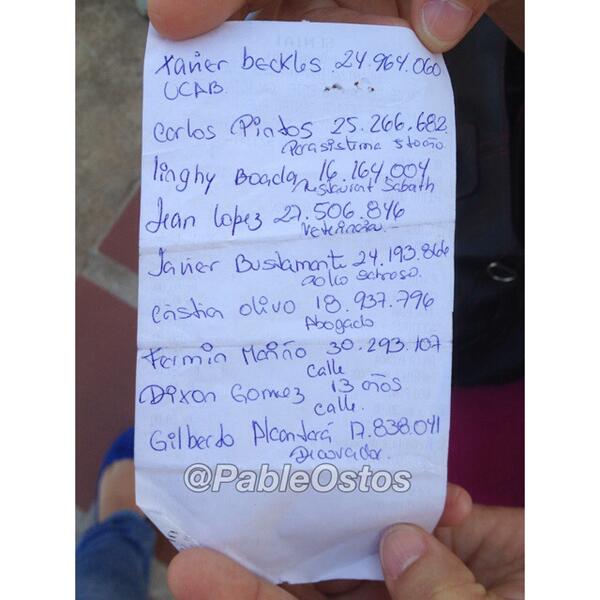 Xavier beckles. 24.964.060
UCAB.
Carlos Pintos 25.266.682.
Parasistema
linghy Boada 16.164.004
Restaurant Sabath
Jean Lopez 27.506.846
Veterinario.-
Javier Bustamante 24.193.866
polco sabroso.
Cristia olivo 18.937.796
Abogado
Fermin Maiño 30.293.107
calle
Dixon Gomez 13 años
calle.
Gilberto Alcantará 17.838.041
@PableOstos